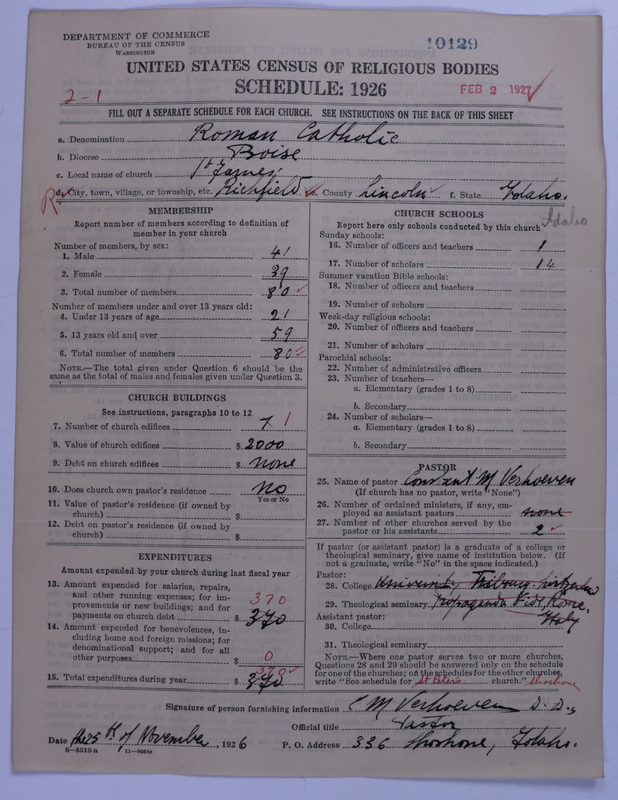 DEPARTMENT OF COMMERCE
BUREAU OF THE CENSUS
WASHINGTON
10129
UNITED STATES CENSUS OF RELIGIOUS BODIES
SCHEDULE: 1926
2-1
FEB 2 1927
FILL OUT A SEPARATE SCHEDULE FOR EACH CHURCH. SEE INSTRUCTIONS ON THE BACK OF THIS SHEET
a. Denomination Roman Catholic
b. Diocese Boise
c. Local name of church St James,
R d. City, town, village, or township, etc. Richfield e. County Lincoln f. State Idaho.
Idaho
MEMBERSHIP
Report number of members according to definition of
member in your church
Number of members, by sex:
1. Male 41
2. Female 39
3. Total number of members 80
Number of members under and over 13 years old:
4. Under 13 years of age 21
5. 13 years old and over 59
6. Total number of members 80
NOTE.—The total given under Question 6 should be
same as the total of males and females given under Question 3.
CHURCH BUILDINGS
See instructions, paragraphs 10 to 12
7. Number of church edifices 1 1
8. Value of church edifices $ 2000
9. Debt on church edifices $ none
10. Does church own pastor's residence no
Yes or No
11. Value of pastor's residence (if owned by
church) $
12. Debt on pastor's residence (if owned by
church) $
EXPENDITURES
Amount expended by your church during last fiscal year
13. Amount expended for salaries, repairs,
and other running expenses; for im-
provements or new buildings; and for
payments on church debt $ 370
370
14. Amount expended for benevolences, in-
cluding home and foreign missions; for
denominational support; and for all
other purposes $ 0
15. Total expenditures during year $ 370
370
CHURCH SCHOOLS
Report here only schools conducted by this church
Sunday schools:
16. Number of officers and teachers 1
17. Number of scholars 14
Summer vacation Bible schools:
18. Number of officers and teachers
19. Number of scholars
Week-day religious schools:
20. Number of officers and teachers
21. Number of scholars
Parochial schools:
22. Number of administrative officers
23. Number of teachers—
a. Elementary (grades 1 to 8)
b. Secondary
24. Number of scholars—
a. Elementary (grades 1 to 8)
b. Secondary
PASTOR
25. Name of pastor Constant M Verhoeven
(If church has no pastor, write "None")
26. Number of ordained ministers, if any, em-
ployed as assistant pastors none
27. Number of other churches served by the
pastor or his assistants 2
If pastor (or assistant pastor) is a graduate of a college or
theological seminary, give name of institution below. (If
not a graduate, write "No" in the space indicated.)
Pastor:
28. College University Fribourg
29. Theological seminary Propaganda Fide, Rome,
Italy
Assistant pastor:
30. College
31. Theological seminary
NOTE.—Where one pastor serves two or more churches,
Questions 28 and 29 should be answered only on the schedule
for one of the churches; on the schedules for the other churches,
write "See schedule for St Peters church." Shoshone
Signature of person furnishing information C M Verhoeven D. D.,
Official title Pastor
Date the 25th of November, 1926 P. O. Address 336 Shoshone, Idaho.
6—5515 a 11—9054